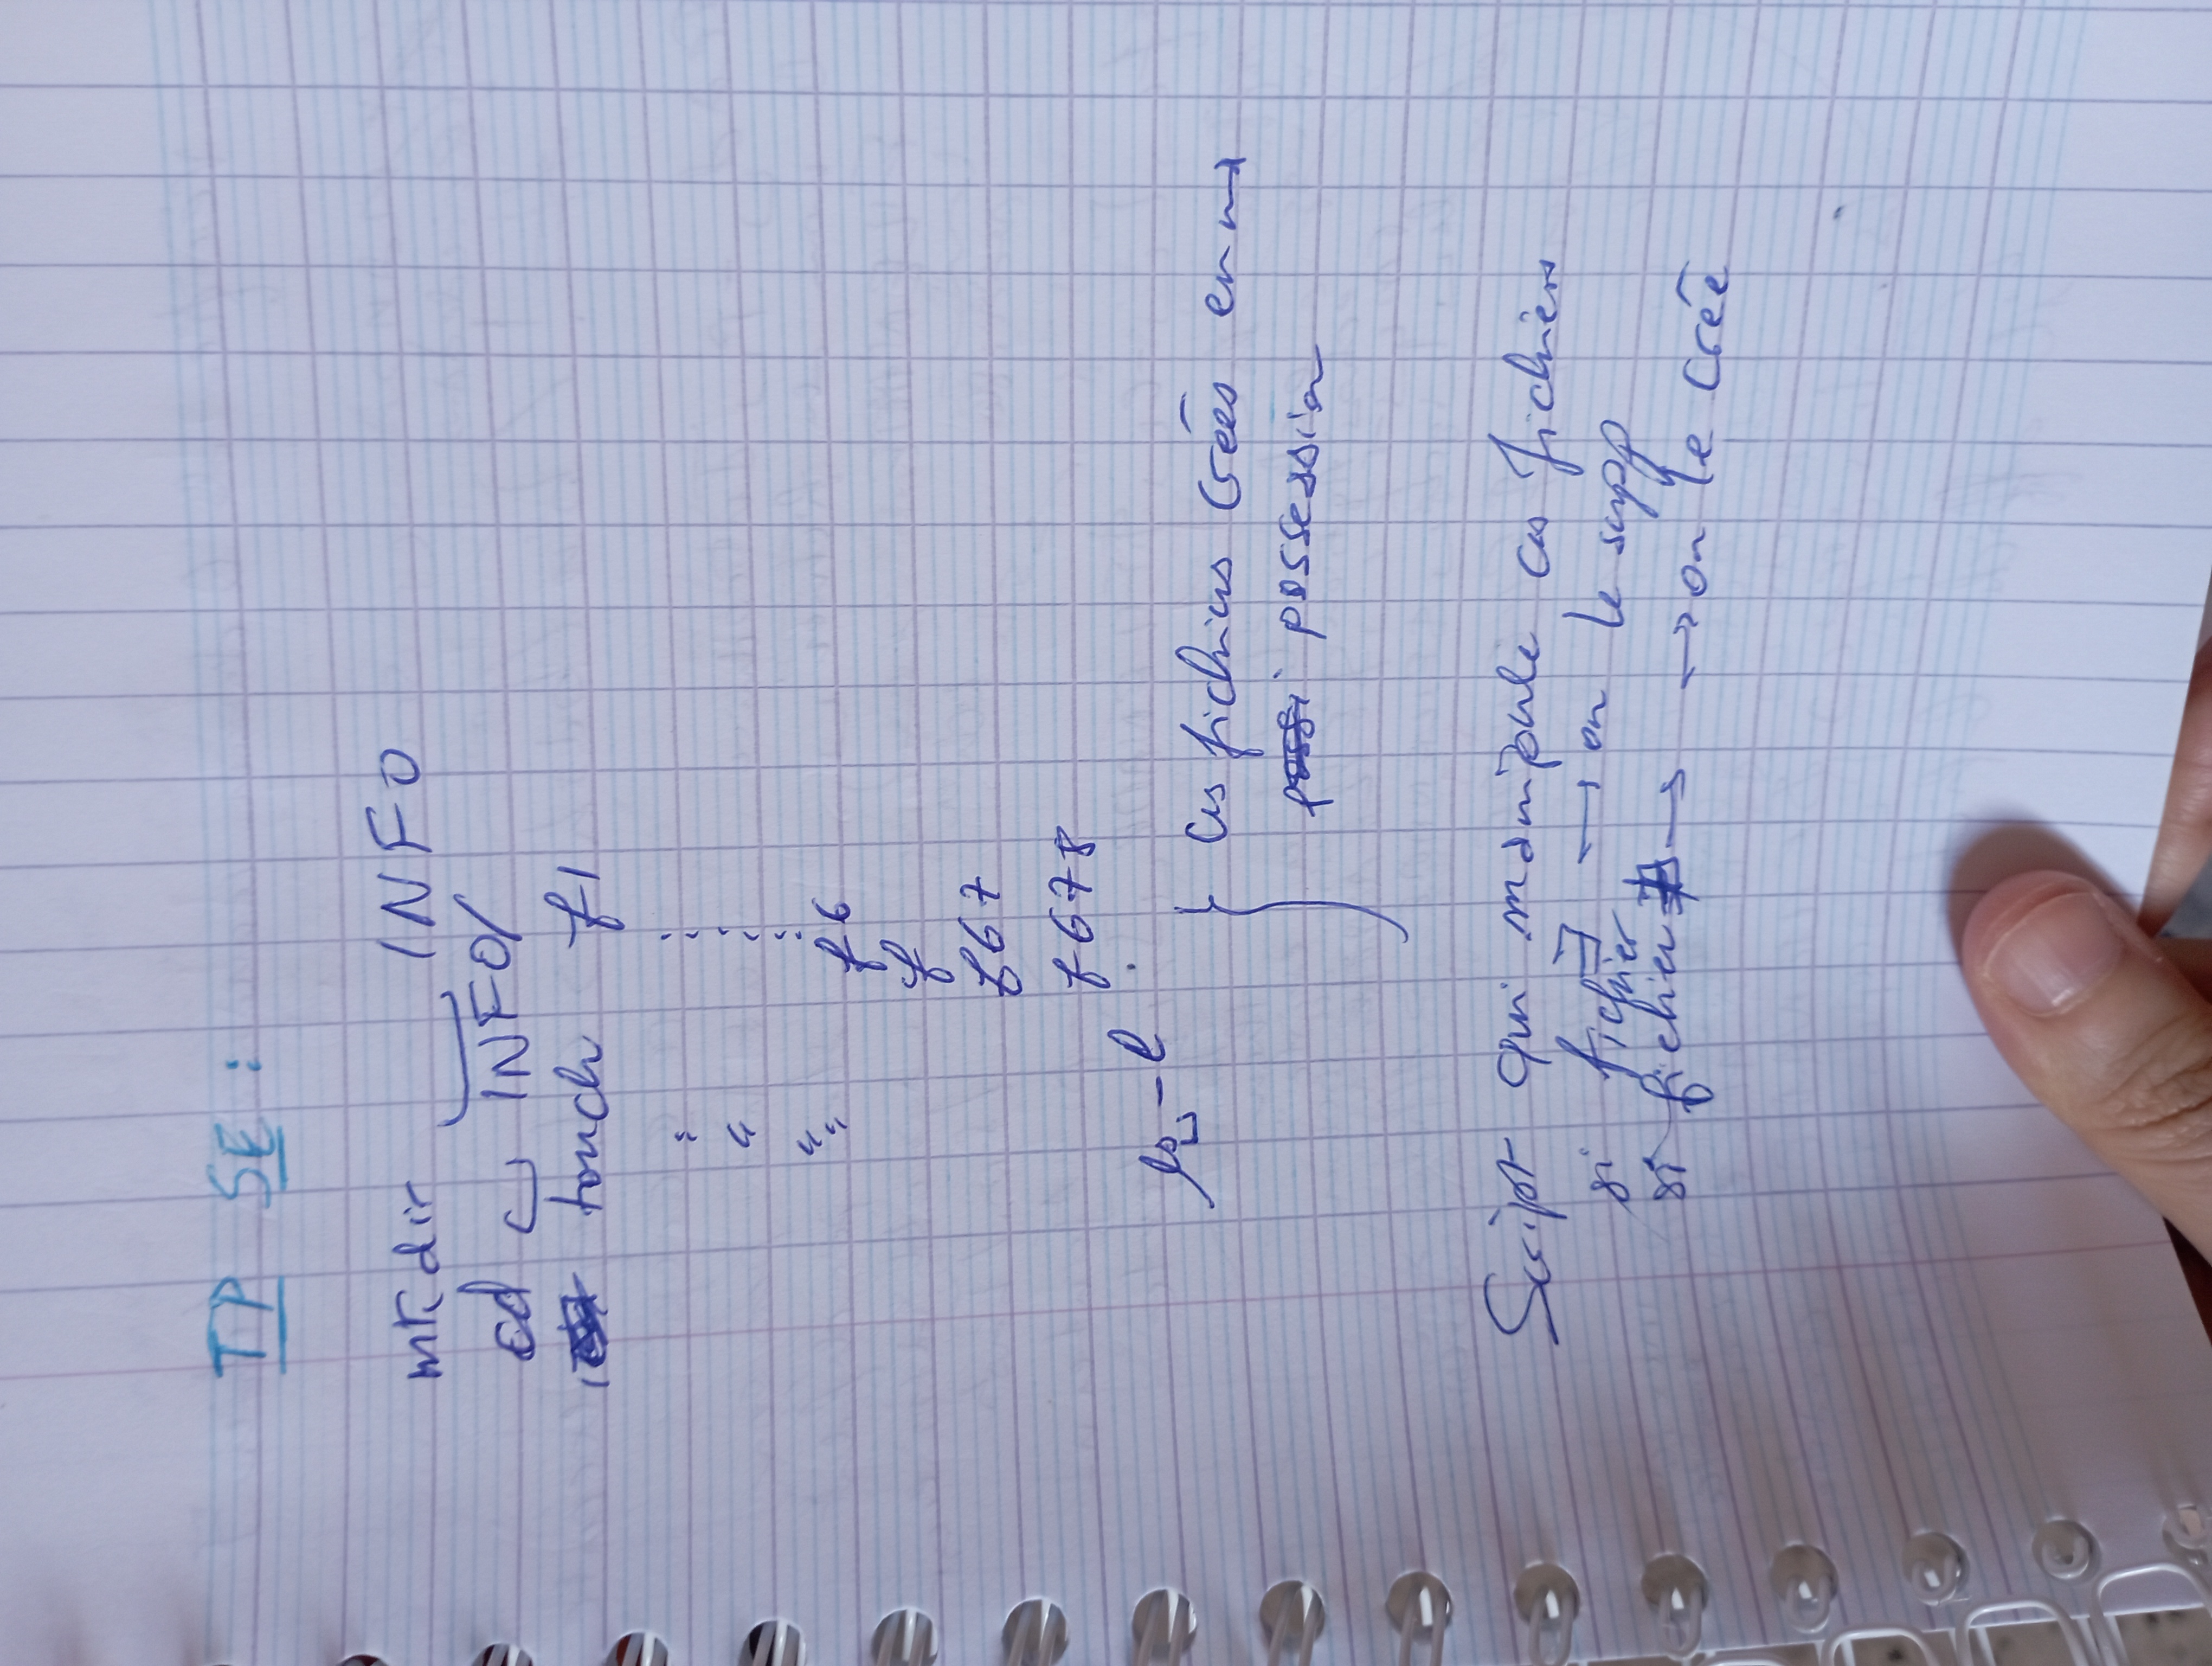 TP SE :
mkdir INFO
cd INFO/
touch f1
" :
" :
" :
" f6
f
f67
f678
ls -l
} ces fichiers créés en ma
possession
Script qui manipule ces fichiers
si fichier ∃ → on le supp
si fichier ∄ → → on le créé